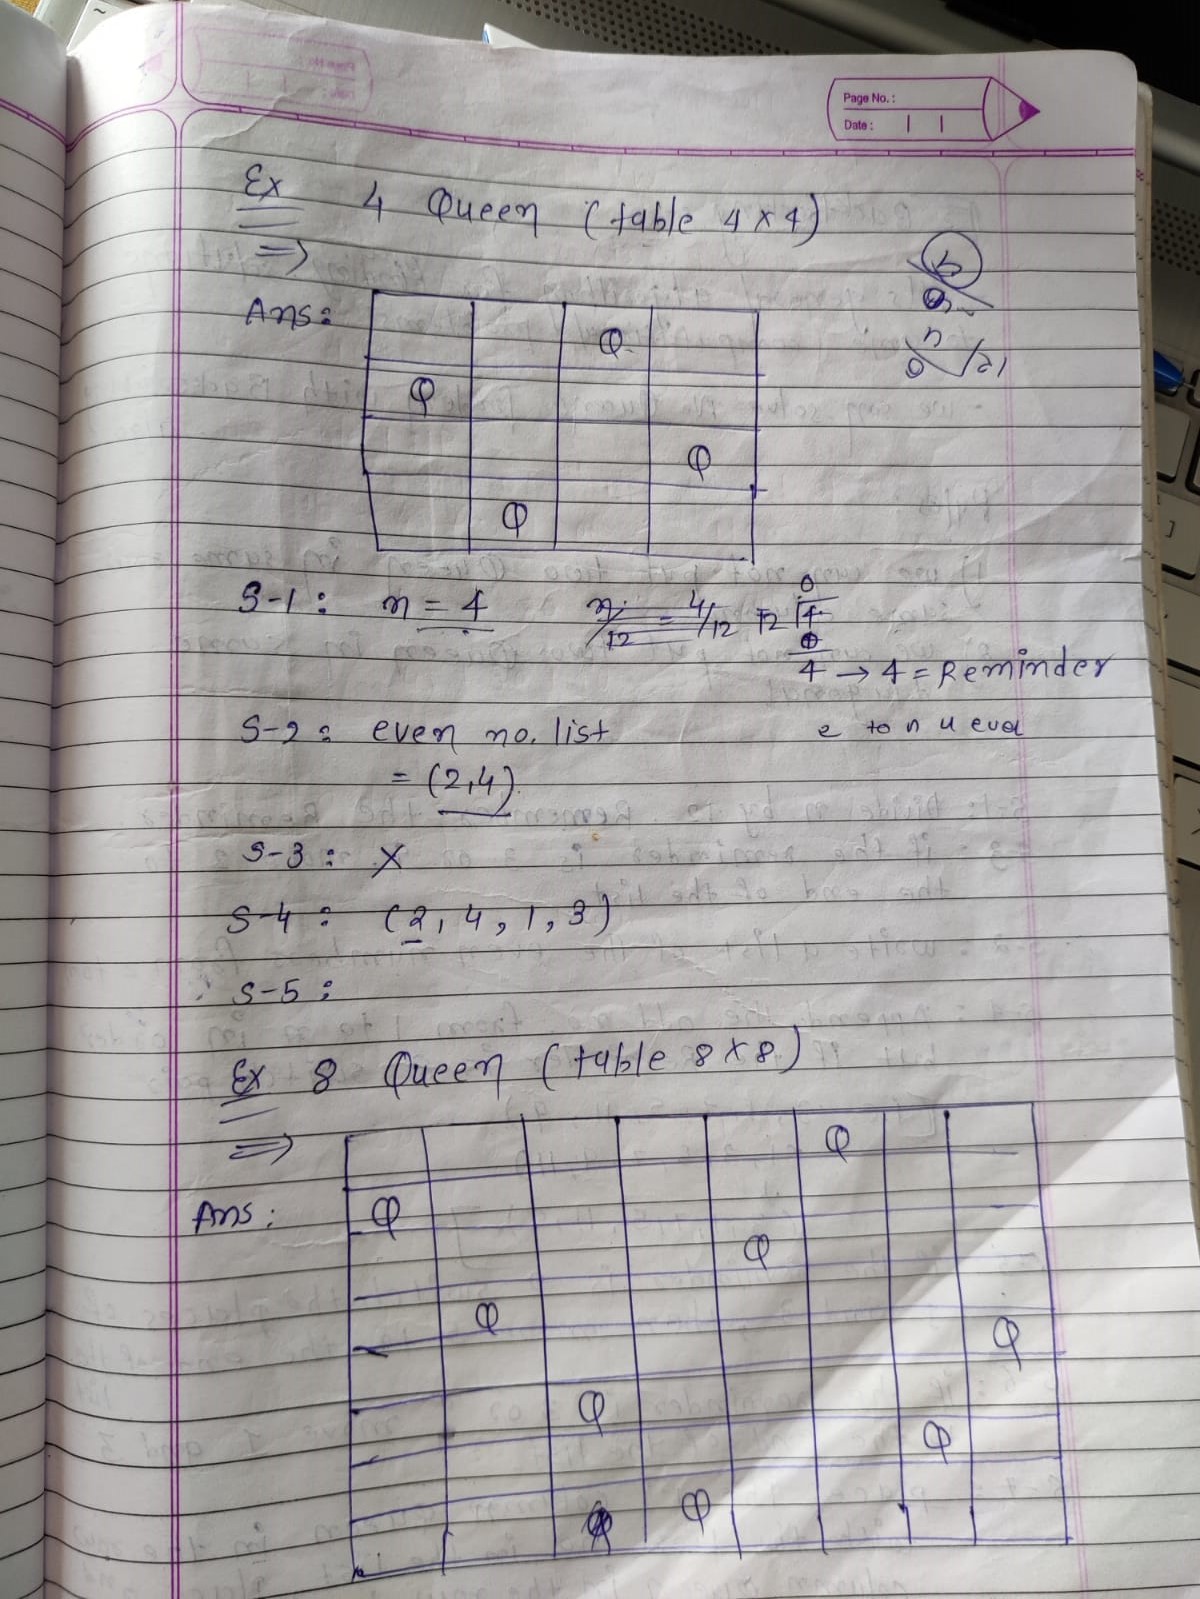 Page No.:
Date:
Ex 4 Queen (table 4×4)
⇒
Ans:
Q
Q
Q
Q
S-1: n = 4 n/12 = 4/12 12 4 0
0
4 → 4 = Reminder
S-2: even no. list
= (2,4)
S-3: X
S-4: (2, 4, 1, 3)
S-5:
Ex 8 Queen (table 8×8)
⇒
Ans:
Q
Q
Q
Q
Q
Q
Q
Q